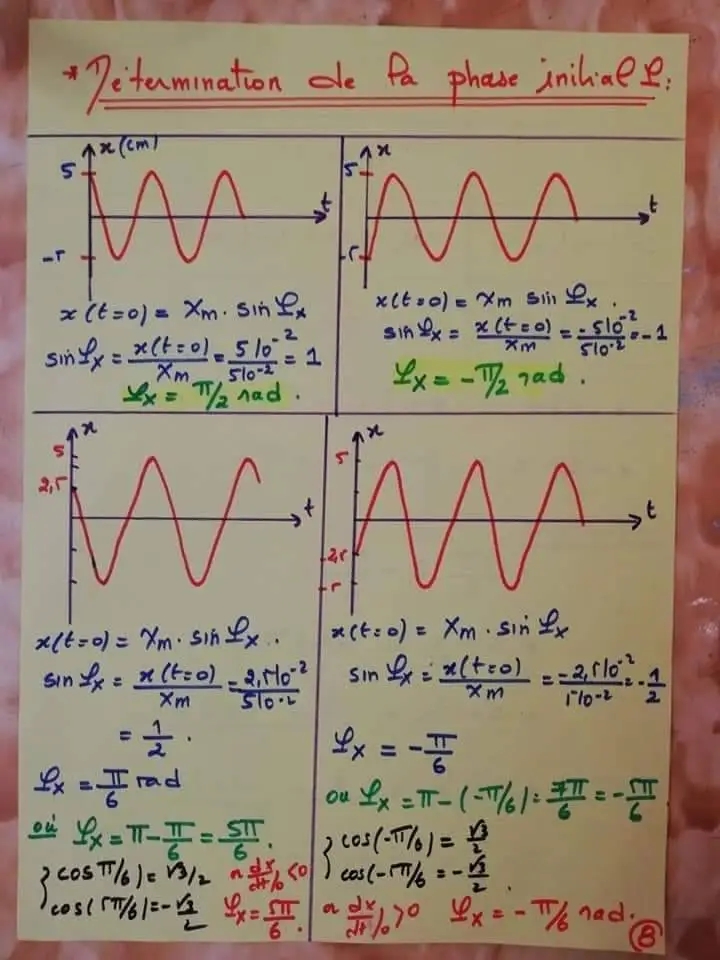 * Détermination de la phase initial φ:
x(cm)
5
-5
t
x(t=0) = Xm. sin φx
sin φx = x(t=0)/Xm = 5 10^-2/5 10^-2 = 1
φx = π/2 rad.
x
5
-5
t
x(t=0) = Xm sin φx.
sin φx = x(t=0)/Xm = -5 10^-2/5 10^-2 = -1
φx = -π/2 rad.
x
5
2,5
t
x(t=0) = Xm. sin φx..
sin φx = x(t=0)/Xm = 2,5 10^-2/5 10^-2
= 1/2.
φx = π/6 rad
où φx = π - π/6 = 5π/6.
} cos π/6) = √3/2
cos(5π/6) = -√3/2
a dx/dt/0 <0
φx = 5π/6.
x
5
-2,5
-5
t
x(t=0) = Xm. sin φx
sin φx = x(t=0)/Xm = -2,5 10^-2/5 10^-2 = -1/2
φx = -π/6
ou φx = π-(-π/6) = 7π/6 = -5π/6
} cos(-π/6) = √3/2
cos(-5π/6) = -√3/2.
a dx/dt/0 >0 φx = -π/6 rad.
8